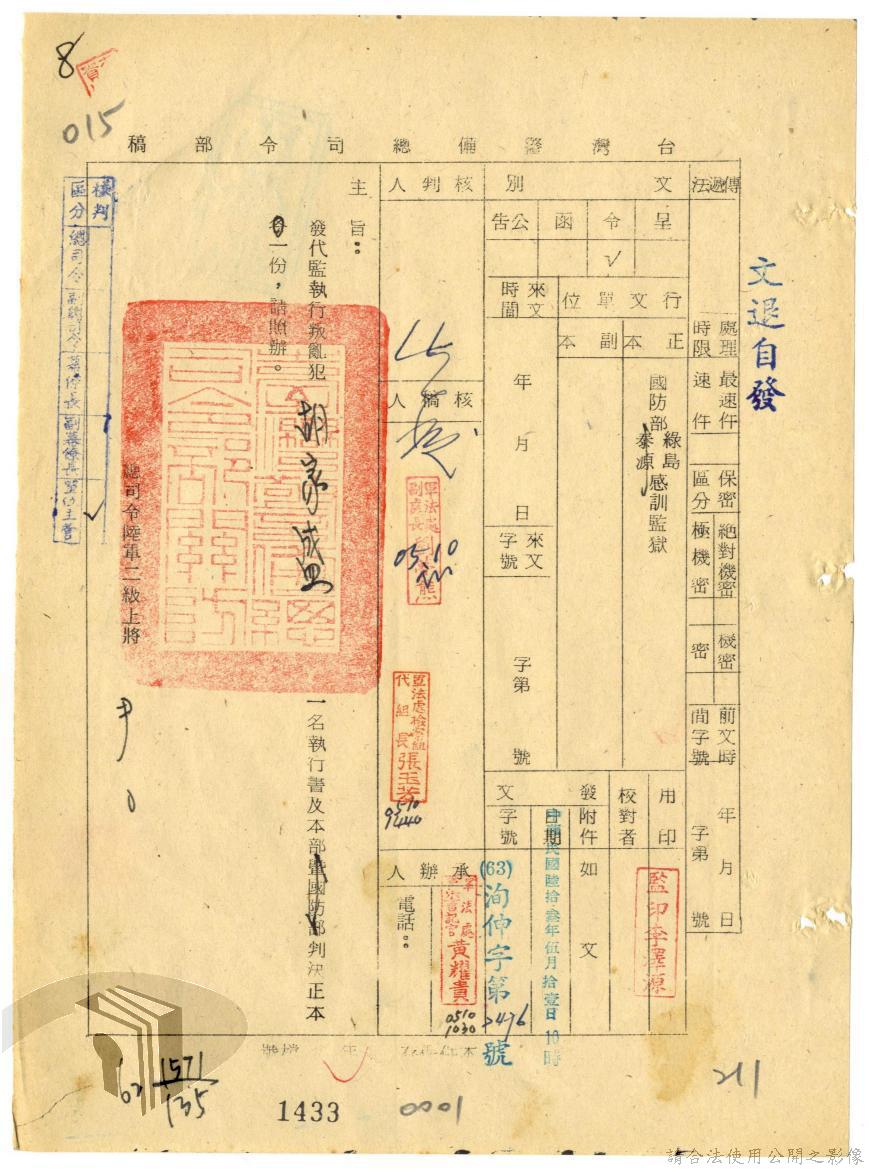 8
015
台灣警備總司令部稿
核判區分
總司令
副總司令
幕僚長
副幕僚長
單位主管
文退自發
傳遞法
處理時限
最速件
速件
保密區分
絕對機密
極機密
機密
密
前文時間字號
年月日
字第號
文別
呈
令
函
公告
√
行文單位
正本
副本
國防部綠島感訓監獄
泰源
來文時間
年月日
來文字號
字第號
用印
監印李澤源
校對者
發文
附件
如文
日期
中華民國陸拾叁年伍月拾壹日10時
字號
(63)洵伸字第2476號
核判人
核稿人
軍法處副處長
0510
軍法處檢察組代組長張玉芳
0510
承辦人
軍法處
黃耀貴
0510
1030
電話：
主旨：
發代監執行叛亂犯
一名執行書及本部暨國防部判決正本
一份，請照辦。
總司令陸軍二級上將
尹
62 1571/135
1433
0001
211
請合法使用公開之影像